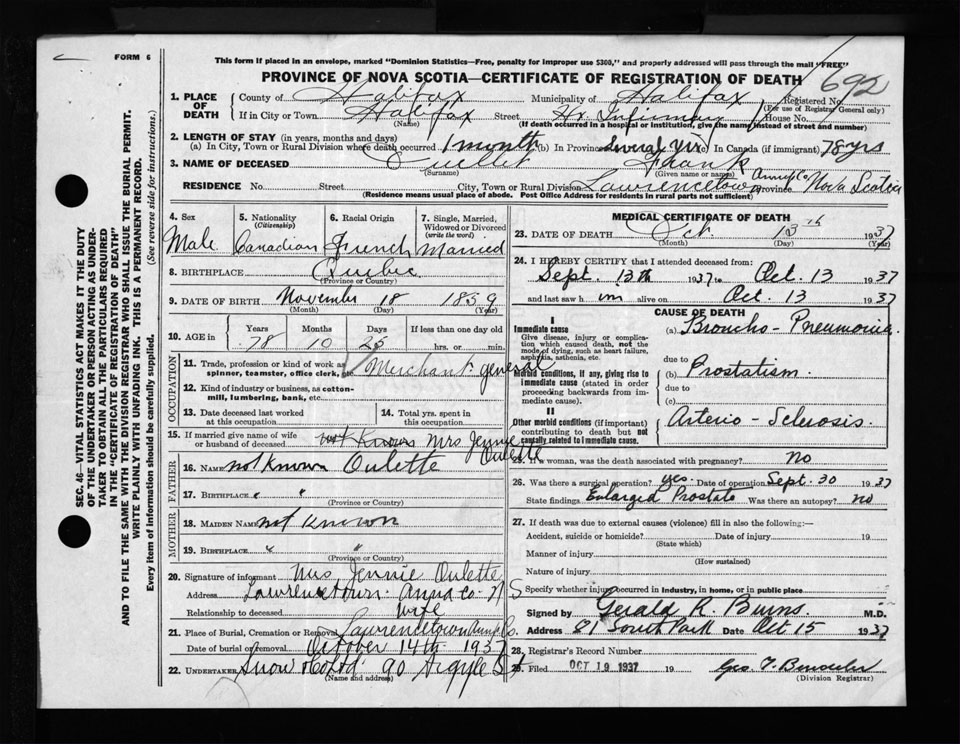 FORM 6
This form if placed in an envelope, marked "Dominion Statistics—Free, penalty for improper use $300," and properly addressed will pass through the mail "FREE"
PROVINCE OF NOVA SCOTIA—CERTIFICATE OF REGISTRATION OF DEATH
692
1. PLACE OF DEATH County of Halifax Municipality of Halifax Registered No.
(For use of Registrar General only)
If in City or Town Halifax Street Hx Infirmary House No.
(Name) (If death occurred in a hospital or institution, give the name instead of street and number)
2. LENGTH OF STAY (in years, months and days)
(a) In City, Town or Rural Division where death occurred 1 month (b) In Province Several yrs (c) In Canada (if immigrant) 78 yrs
3. NAME OF DECEASED Ouellet Frank
(Surname) (Given name or names)
RESIDENCE No. Street City, Town or Rural Division Lawrencetown Anna Co Province Nova Scotia
(Residence means usual place of abode. Post Office Address for residents in rural parts not sufficient)
4. Sex Male
5. Nationality (Citizenship) Canadian
6. Racial Origin French
7. Single, Married, Widowed or Divorced (write the word) Married
8. BIRTHPLACE Quebec
(Province or Country)
9. DATE OF BIRTH November 18 1859
(Month) (Day) (Year)
10. AGE in Years 78 Months 10 Days 25 If less than one day old hrs. or min.
OCCUPATION
11. Trade, profession or kind of work as spinner, teamster, office clerk, etc. Merchant general
12. Kind of industry or business, as cotton-mill, lumbering, bank, etc.
13. Date deceased last worked at this occupation
14. Total yrs. spent in this occupation
15. If married give name of wife or husband of deceased not known Mrs Jennie Oulette
FATHER
16. Name not known Oulette
17. Birthplace " "
(Province or Country)
MOTHER
18. Maiden Name not known
19. Birthplace " "
(Province or Country)
20. Signature of informant Mrs Jennie Oulette
Address Lawrencetown Anna Co. N S
Relationship to deceased wife
21. Place of Burial, Cremation or Removal Lawrencetown Anna Co.
Date of burial or removal October 14th 1937
22. Undertaker Snow & Co Ltd 90 Argyle St
(Name and address)
MEDICAL CERTIFICATE OF DEATH
23. DATE OF DEATH Oct. 13th 1937
(Month) (Day) (Year)
24. I HEREBY CERTIFY that I attended deceased from:
Sept. 13th 1937 to Oct. 13 1937
and last saw him alive on Oct. 13 1937
CAUSE OF DEATH
I
Immediate cause
Give disease, injury or complication which caused death, not the mode of dying, such as heart failure, asphyxia, asthenia, etc.
(a) Broncho-Pneumonia.
due to
Morbid conditions, if any, giving rise to immediate cause (stated in order proceeding backwards from immediate cause).
(b) Prostatism.
due to
(c)
II
Other morbid conditions (if important) contributing to death but not causally related to immediate cause.
Arterio-Sclerosis.
25. If a woman, was the death associated with pregnancy? no
26. Was there a surgical operation? yes. Date of operation Sept. 30 1937
State findings Enlarged Prostate Was there an autopsy? no
27. If death was due to external causes (violence) fill in also the following:—
Accident, suicide or homicide? Date of injury 19
(State which)
Manner of injury
(How sustained)
Nature of injury
Specify whether injury occurred in industry, in home, or in public place
Signed by Gerald R. Burns. M.D.
Address 81 South Park Date Oct 15 1937
28. Registrar's Record Number
29. Filed OCT 19 1937 19
(Division Registrar)
SEC. 46—VITAL STATISTICS ACT MAKES IT THE DUTY
OF THE UNDERTAKER OR PERSON ACTING AS UNDER-
TAKER TO OBTAIN ALL THE PARTICULARS REQUIRED
IN THE "CERTIFICATE OF REGISTRATION OF DEATH"
AND TO FILE THE SAME WITH THE DIVISION REGISTRAR WHO SHALL ISSUE THE BURIAL PERMIT.
WRITE PLAINLY WITH UNFADING INK. THIS IS A PERMANENT RECORD.
Every item of information should be carefully supplied. (See reverse side for instructions.)